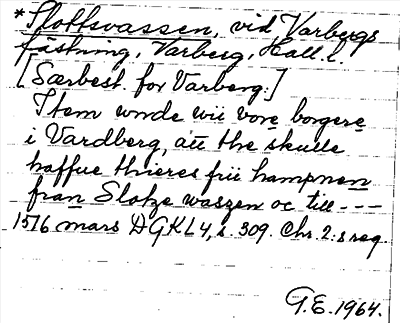 *Slottsvassen, vid Varbergs
fästning, Varberg, Hall. l.
[Særbest. for Varberg.]
Item unde wii vore borgere
i Vardberg, att the skulle
haffue thieres frii hampnen
fran Slotze waszen oc till ---
1516 mars DGKL4, s. 309. Chr. 2:s reg.
G.E. 1964.